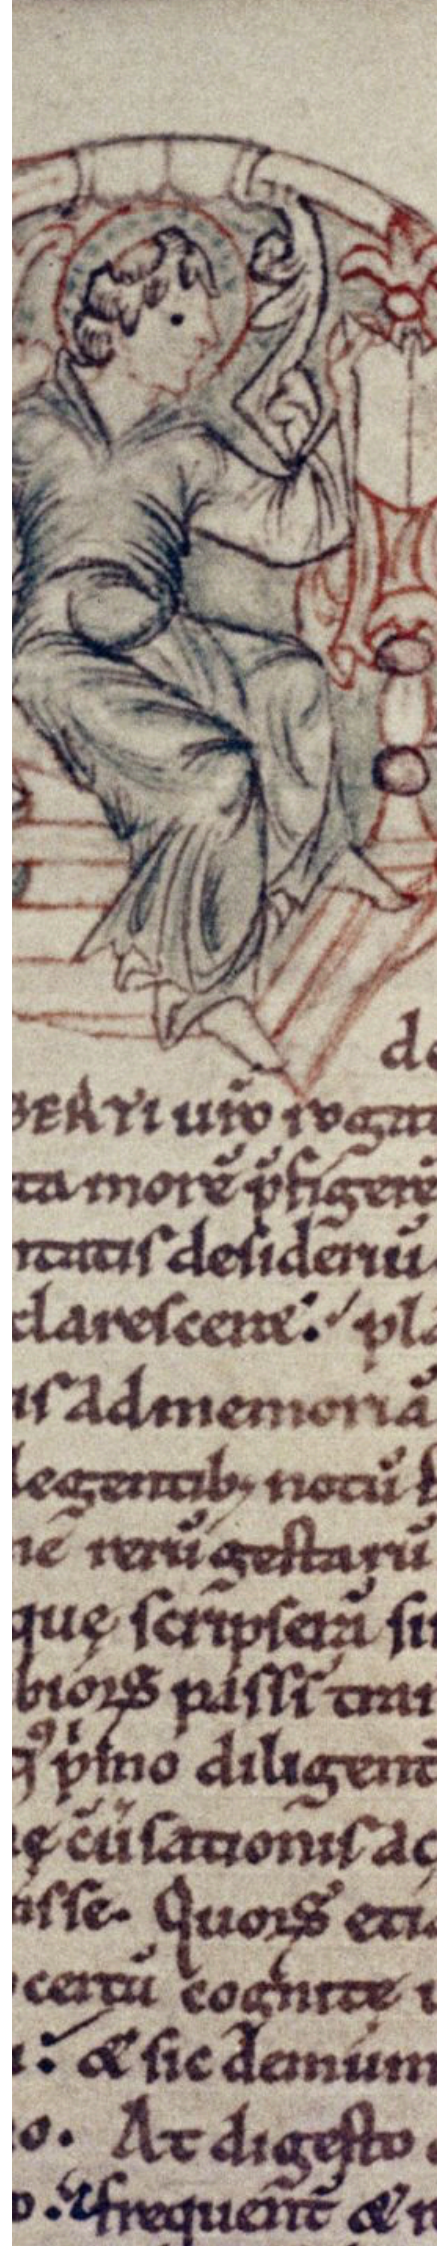 de
BERTI uiro rogat
ta morē p̄figere
ntatis desideriū
clarescere: pla
us ad memoriā
legentib; notū
nē rerū gestarū
quę scripserā sin
bioꝝ passī trai
pmo diligent
ę cūsationis ac
isse. Quoꝝ etia
certū cognitę
: & sic demum
o. At digesto
o. frequent̄ & n